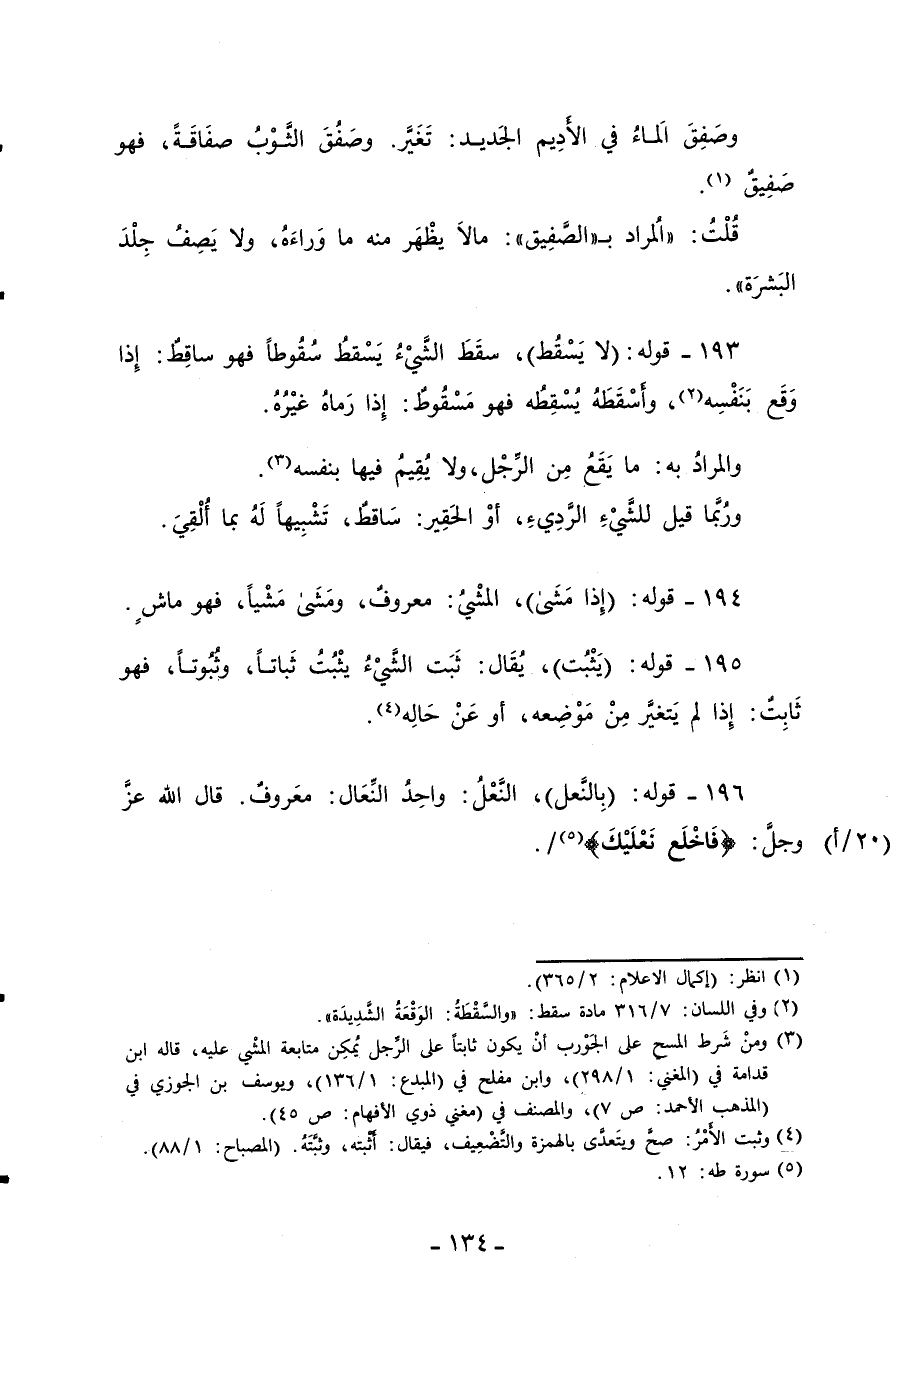 وصَفِقَ اَلمـاءُ في الأَدِيم الجَديـد: تَغَيَّر. وصَفُقَ الثَّـوْبُ صفَاقَـةً، فهو
صَفِيقٌ (١).
قُلْتُ: «اُلمراد بـ«الصَّفِيق»: مالاَ يظْهَر منه ما وَراءَهُ، ولا يَصِفُ جِلْدَ
البَشرَة».
١٩٣ ـ قوله: (لا يَسْقُط)، سقَطَ الشَّيْءُ يَسْقطُ سُقُوطاً فهو ساقِطٌ: إِذا
وَقَع بَنَفْسِه(٢)، وأَسْقَطَهُ يُسْقِطُه فهو مَسْقُوطٌ: إِذا رَماهُ غيْرُهُ.
والمرادُ به: ما يَقَعُ مِن الرِّجْل،ولا يُقِيمُ فيها بنفسه(٣).
ورُبَّما قيل للشَّيْءِ الرَّدِيءِ، أوْ الحَقِير: سَاقطٌ، تَشْبِيهاً لَهُ بما أُلْقِيَ.
١٩٤ ـ قوله: (إِذا مَشَىٰ)، المشْيُ: معروفٌ، ومَشَىٰ مَشْياً، فهو ماشٍ.
١٩٥ ـ قوله: (يَثْبُت)، يُقَال: ثَبَت الشَّيْءُ يثْبُتُ ثَباتـاً، وثُبُوتـاً، فهو
ثَابِتٌ: إِذا لم يَتغيَّر مِنْ مَوْضِعه، أو عَنْ حَالِه(٤).
١٩٦ ـ قوله: (بِالنَّعل)، النَّعْلُ: واحِدُ النِّعَال: معَروفٌ. قال الله عزَّ
(٢٠/أ) وجلَّ: ﴿فَاخْلَع نَعْلَيْكَ﴾(٥)/.
(١) انظر: (إكمال الاعلام: ٣٦٥/٢).
(٢) وفي اللسان: ٣١٦/٧ مادة سقط: «والسَّقْطَةُ: الوَقْعَةُ الشَّدِيدَة».
(٣) ومنْ شَرط المسح على الجَوْرب أنْ يكون ثابتاً على الرِّجل يُمكِن متابعة المشْي عليه، قاله ابن
قدامة في (المغني: ٢٩٨/١)، وابن مفلح في (المبدع: ١٣٦/١)، ويوسف بن الجوزي في
(المذهب الأحمد: ص ٧)، والمصنف في (مغني ذوي الأفهام: ص ٤٥).
(٤) وثبت الأَمْرُ: صحَّ ويتَعدَّى بالهمزة والتَّضْعِيف، فيقال: أَثْبته، وثبَّتَهُ. (المصباح: ٨٨/١).
(٥) سورة طه: ١٢.
ـ ١٣٤ ـ